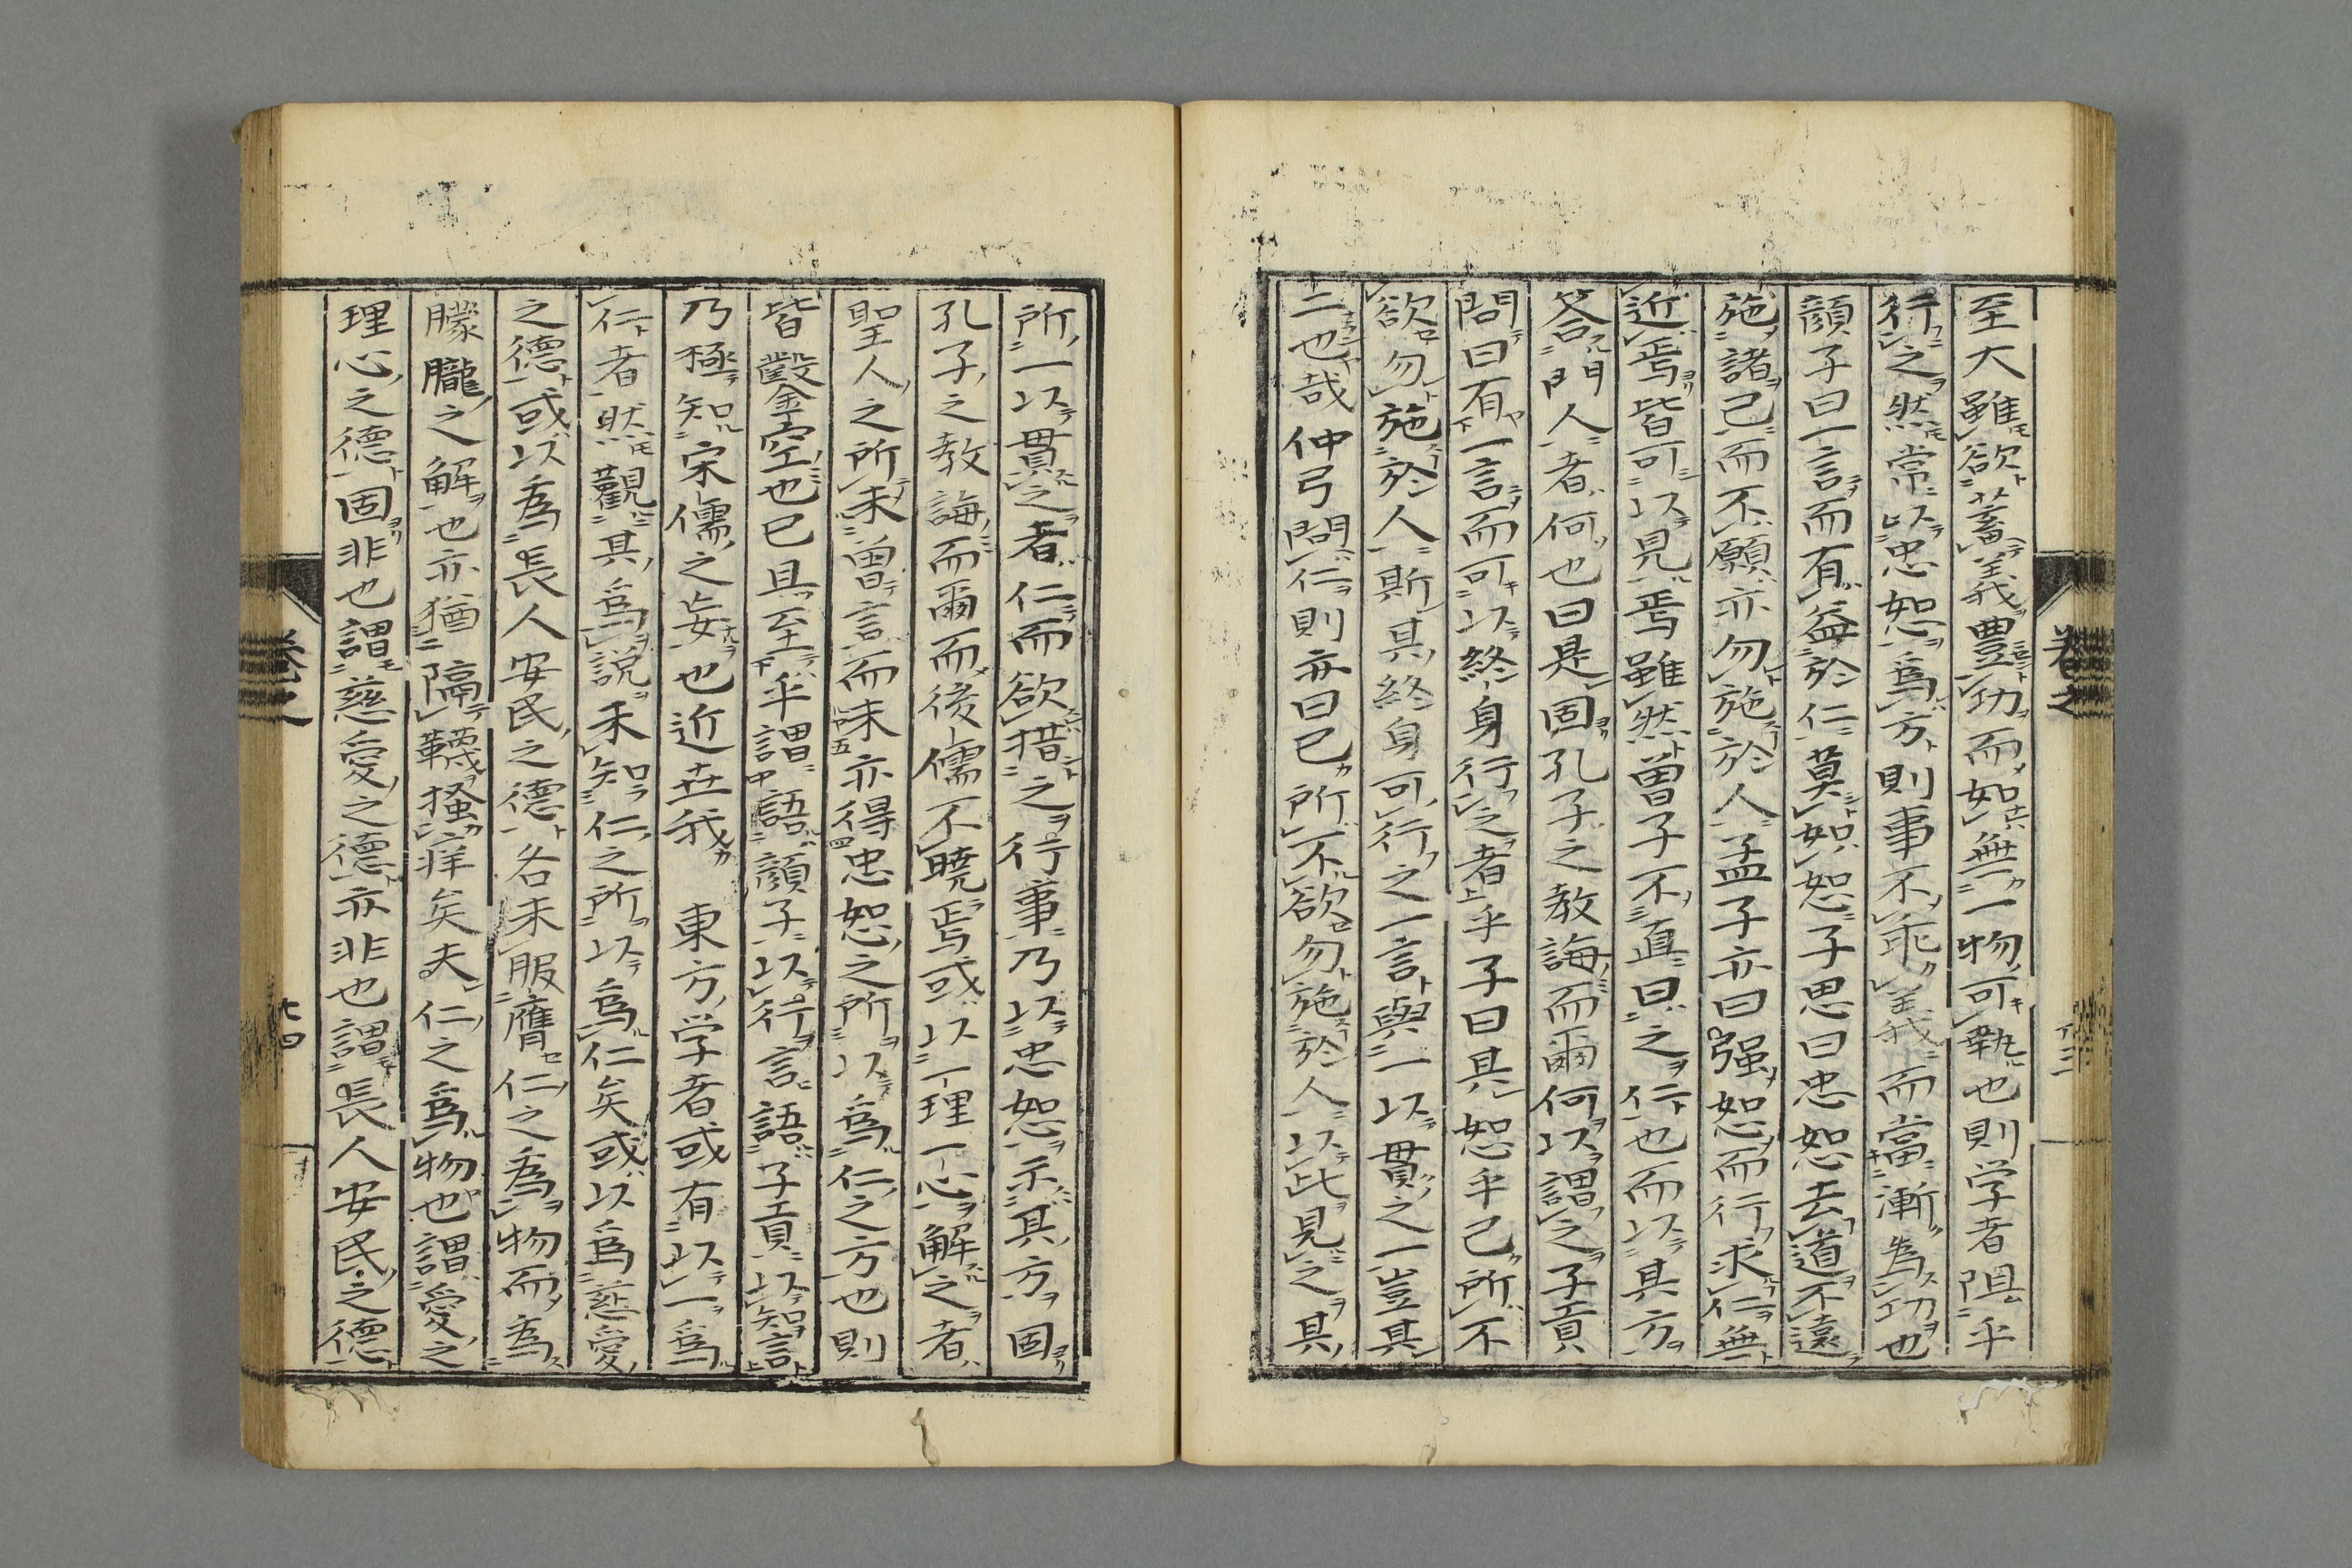 至大雖欲蓄義豊功而如無一物可執也則学者阻乎
行之然常以忠恕爲方則事不乖義而當漸為功也
顔子曰一言而有益於仁莫如恕子思曰忠恕去道不遠
施諸己而不願亦勿施於人孟子亦曰强恕而行求仁無
近焉皆可以見焉雖然曽子不直曰之仁也而以其方
答門人者何也曰是固孔子之教誨而爾何以謂之子貢
問曰有一言而可以終身行之者乎子曰其恕乎己所不
欲勿施於人斯其終身可行之一言與一以貫之一豈其
二也哉仲弓問仁則亦曰己所不欲勿施於人以此見之其
所一以貫之者仁而欲措之行事乃以忠恕示其方固
孔子之教誨而爾而後儒不曉焉或以一理一心解之者
聖人之所未曽言而未亦得忠恕之所以爲仁之方也則
皆鑿空也已且至乎謂語顔子以行言語子貢以知言
乃極知宋儒之妄也近世我 東方学者或有以一爲
仁者然觀其爲說未知仁之所以爲仁矣或以爲慈愛
之德或以為長人安民之德各未服膺仁之為物而為
朦朧之解也亦猶隔韈搔痒矣夫仁之爲物也謂愛之
理心之德固非也謂慈愛之德亦非也謂長人安民之德
卷之
卷之